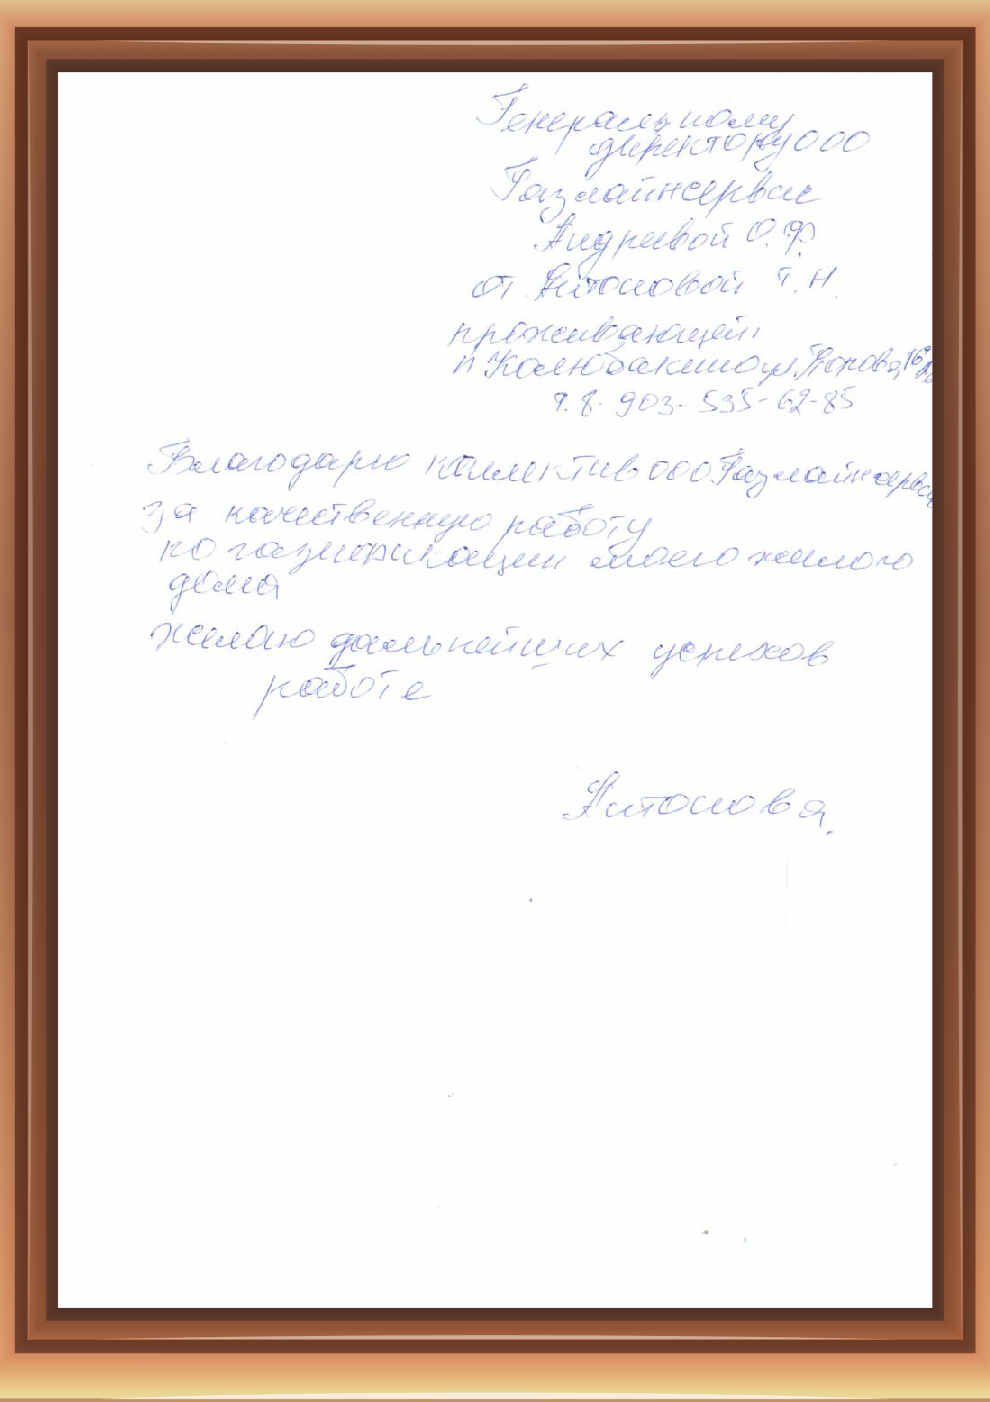 Генеральному
директору ООО
Газлайнсервис
Андреевой О.Ф.
от Антоновой Т.Н.
проживающей:
п Колюбакино ул.
т. 8-903-535-62-85
Благодарю коллектив ООО Газлайнсервис
за качественную работу
по газификации моего жилого
дома
желаю дальнейших успехов
работе
Антонова.